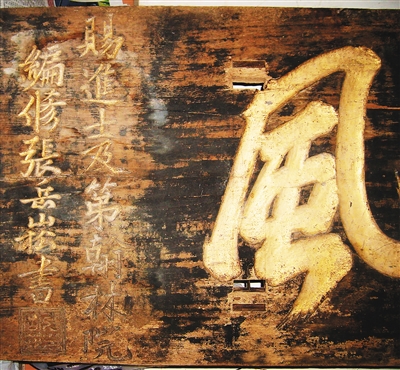 風
賜進士及第翰林院
編修張岳崧書